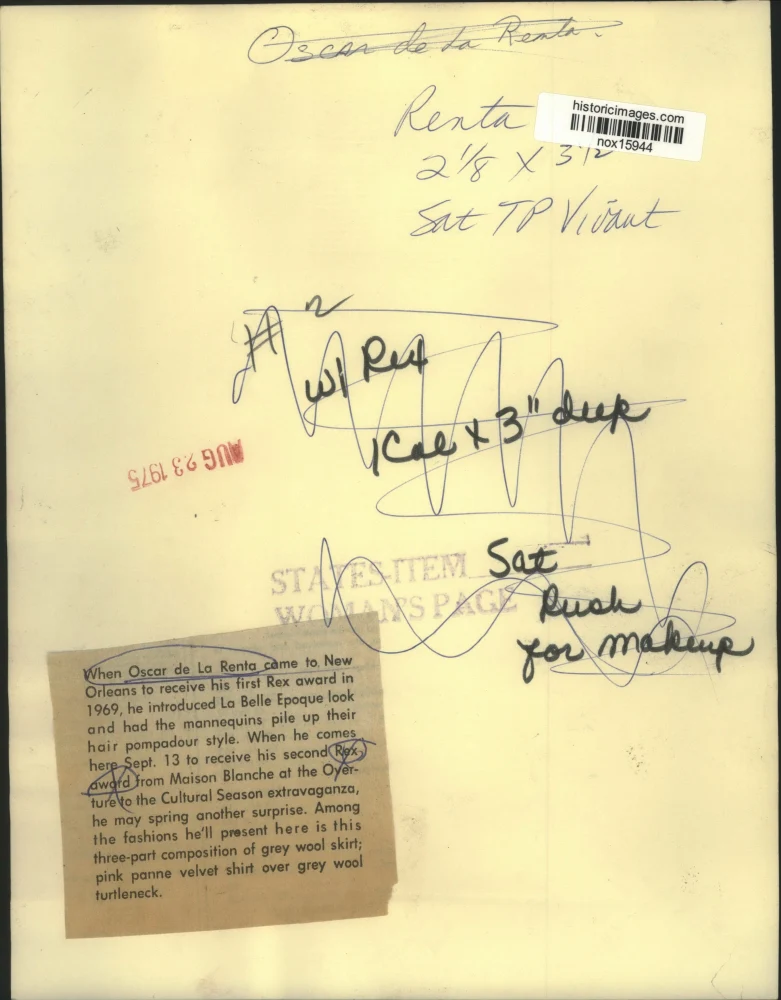 Oscar de La Renta.
Renta
historicimages.com
nox15944
2 1/8 X 3 1/2
Sat TP Vivant
#2
w/ Rex
1 Col x 3" deep
AUG 23 1975
STATES-ITEM
WOMAN'S PAGE
Sat
Rush
for makeup
When Oscar de La Renta came to New
Orleans to receive his first Rex award in
1969, he introduced La Belle Epoque look
and had the mannequins pile up their
hair pompadour style. When he comes
here Sept. 13 to receive his second Rex
award from Maison Blanche at the Over-
ture to the Cultural Season extravaganza,
he may spring another surprise. Among
the fashions he'll present here is this
three-part composition of grey wool skirt;
pink panne velvet shirt over grey wool
turtleneck.